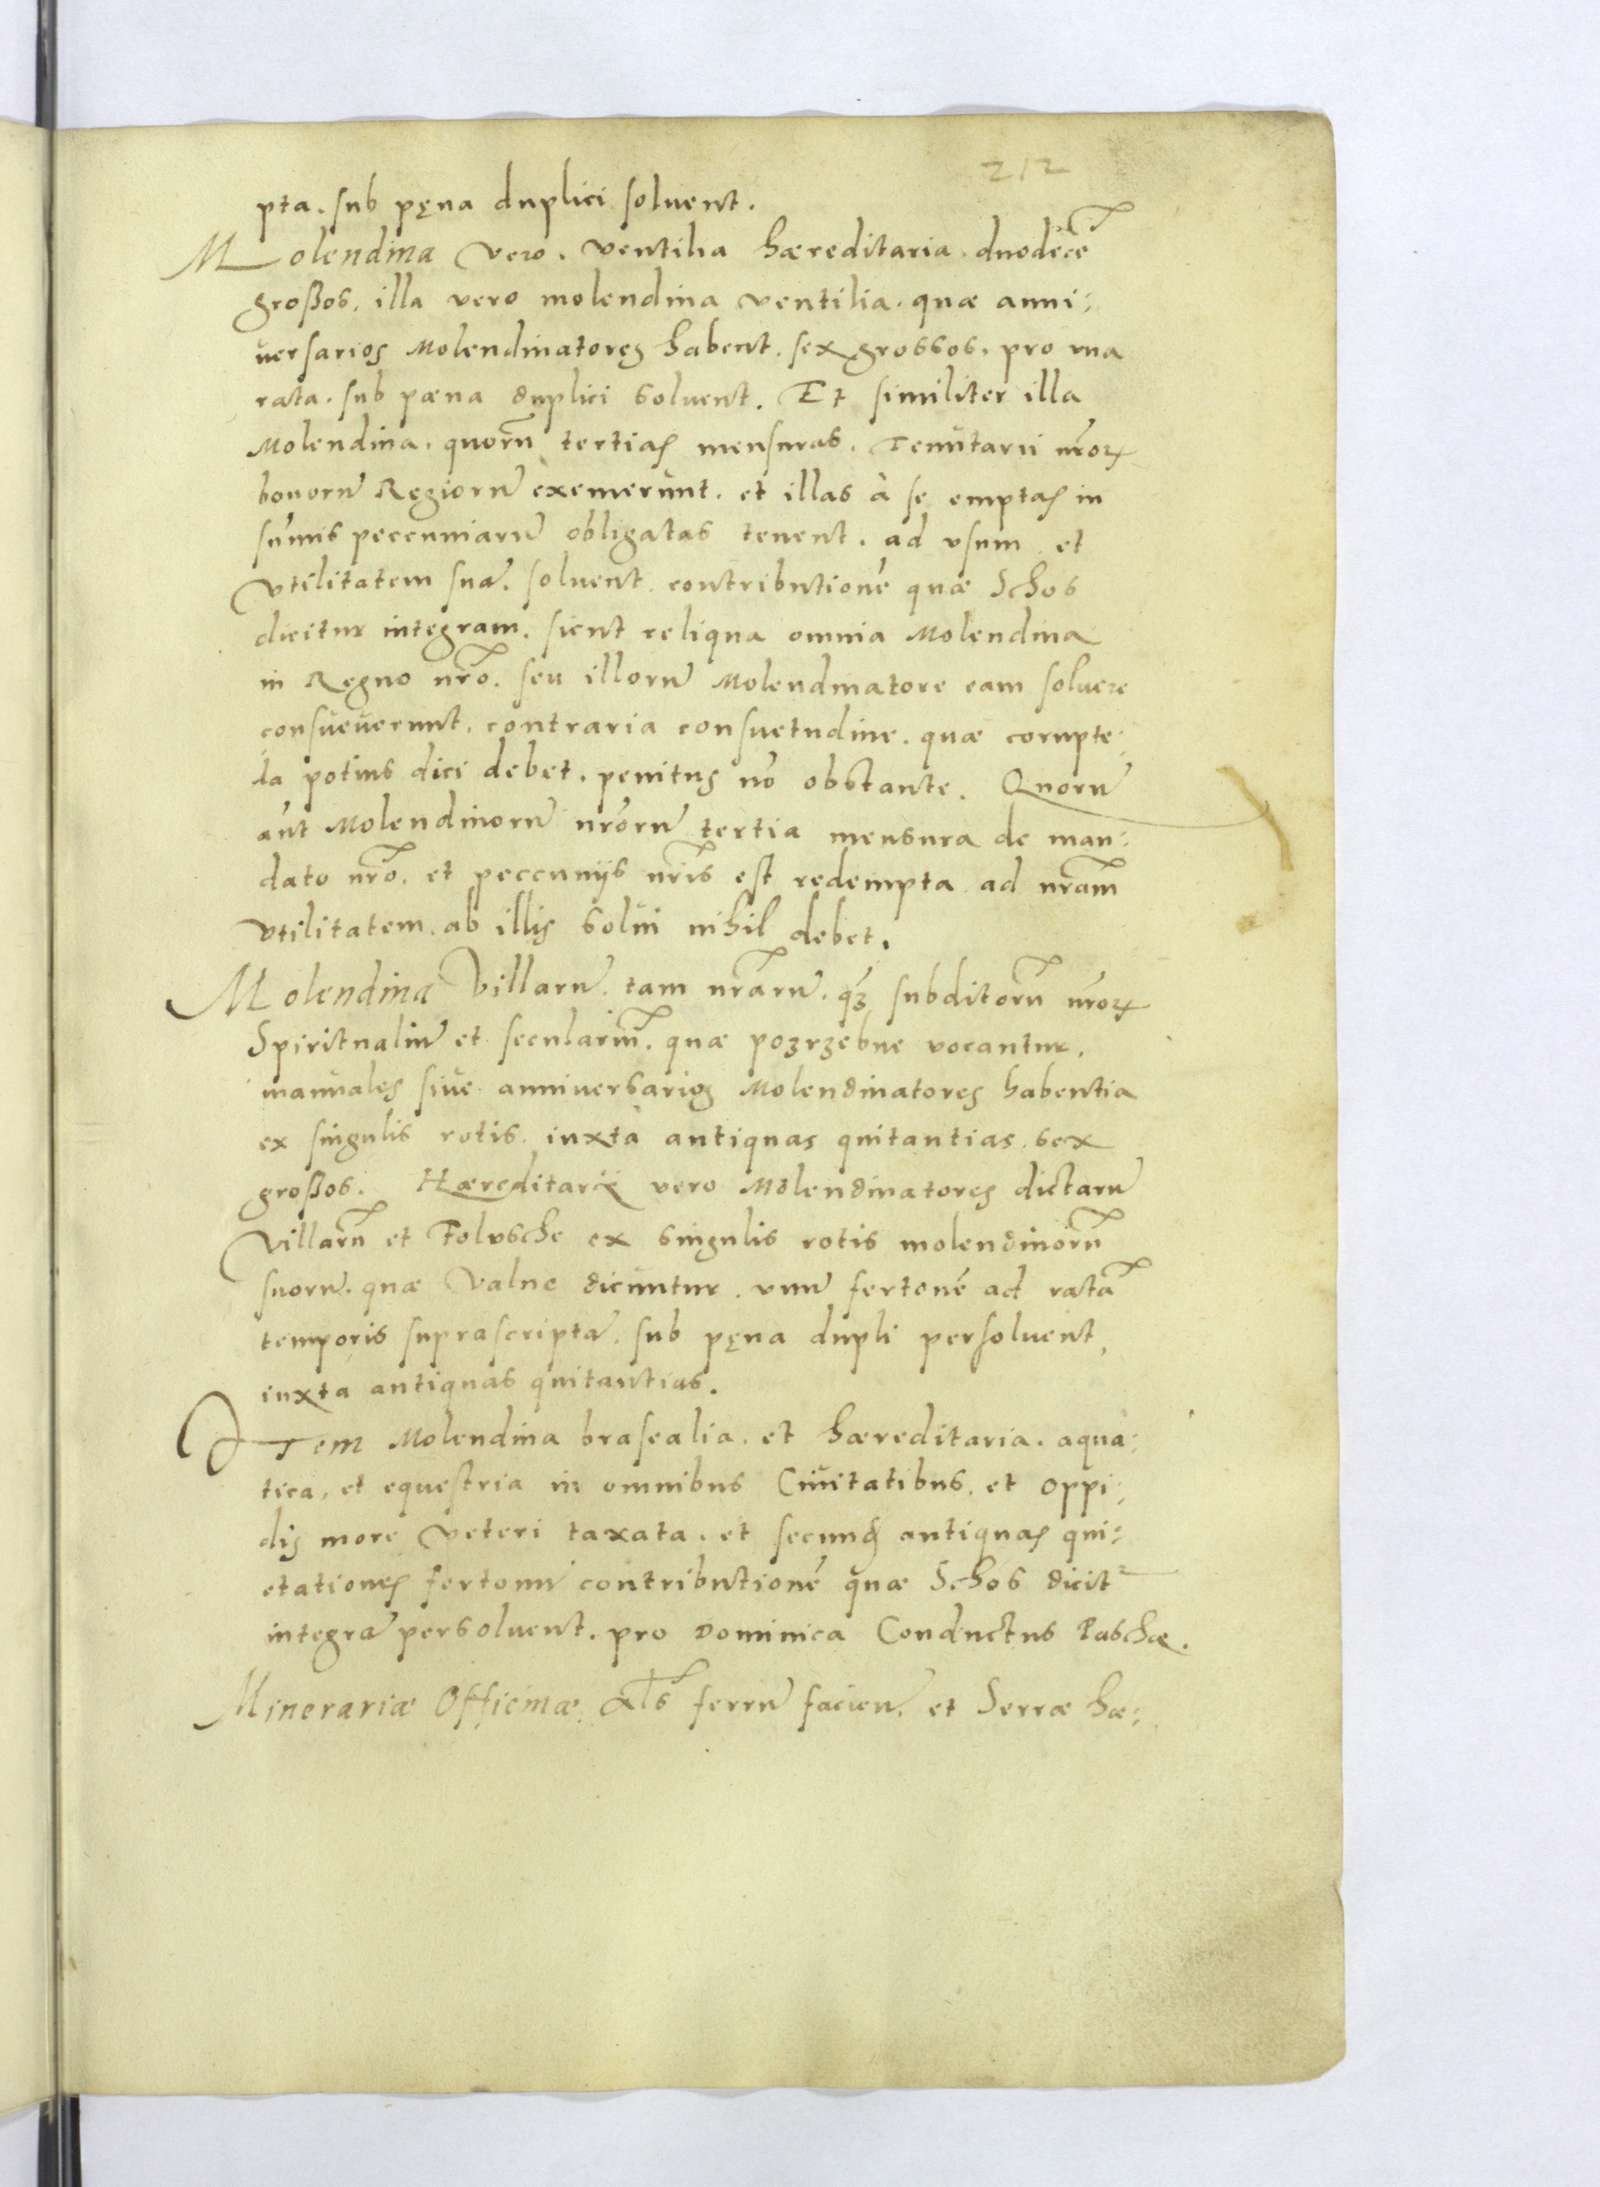 212
pta. sub pęna duplici soluent.
Molendina vero. ventilia hæreditaria. duodecē
großos. illa vero molendina ventilia. quæ anni:
versarios Molendinatores habent. sex grossos. pro una
rata. sub pœna duplici soluent. Et similiter illa
Molendina. quorū tertias mensuras. Tenutarii nr̄oꝝ
bonorū Regiorū exemerunt. et illas à se emptas in
sum̄is peccuniariū obligatas tenent. ad vsum et
vtilitatem suā. soluent contributionē quæ Schos
dicitur integram. sicut reliqua omnia Molendina
in Regno nr̄o. seu illorū Molendinatore eam soluere
consueverunt. contraria consuetudine. quæ corupte:
la potius dici debet. penitus nō obstante. Quorū
aūt Molendinorū nr̄orū tertia mensura de man:
dato nr̄o. et peccunijs nr̄is est redempta ad nr̄am
vtilitatem. ab illis solui nihil debet.
Molendina Villarū. tam nr̄arū. qꝫ subditorū nr̄oꝝ
Spiritualiū et seculariū. quæ pozrzebne vocantur.
manuales sive anniversarios Molendinatores habentia
ex singulis rotis iuxtà antiquas quitantias sex
großos. Hæreditarij vero Molendinatores dictarū
Villarū et Folusche ex singulis rotis molendinorū
suorū. quæ Valne dicuntur. vnū fertonē ad ratā
temporis suprascriptā. sub pęna dupli persoluent,
iuxta antiquas quitantias.
ITem Molendina brasealia. et hæreditaria. aqua:
tica, et equestria in omnibus Ciuitatibus. et oppi:
dis more veteri taxata. et secund̄ antiquas qui:
etationes fertonū contributionē quæ Schos dicit²
integrā persoluent. pro Dominica Conductus Paschæ.
Minerariæ Officinæ. al̄s ferrū facien̄. et Serræ hæ: